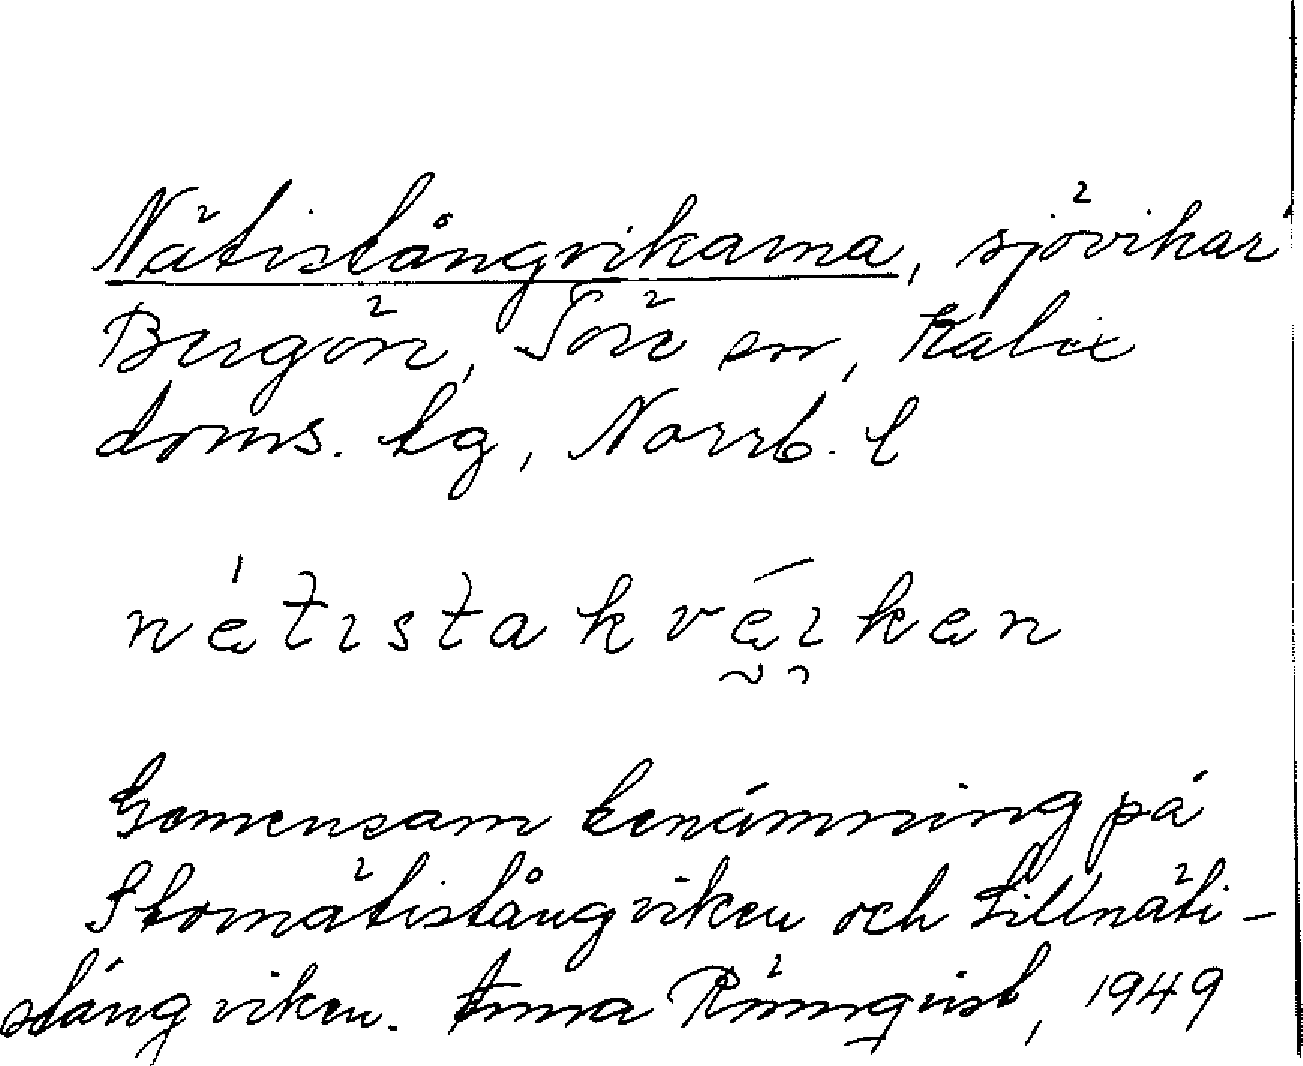 Nätistångvikarna, sjövikar
Bergön, Töre sn, Kalix
doms. tg, Norrb. l
nətɩstakvəɩkən
Gemensam benämning på
Stornätistångviken och Lillnäti-
stångviken. Anna Rönnqvist, 1949